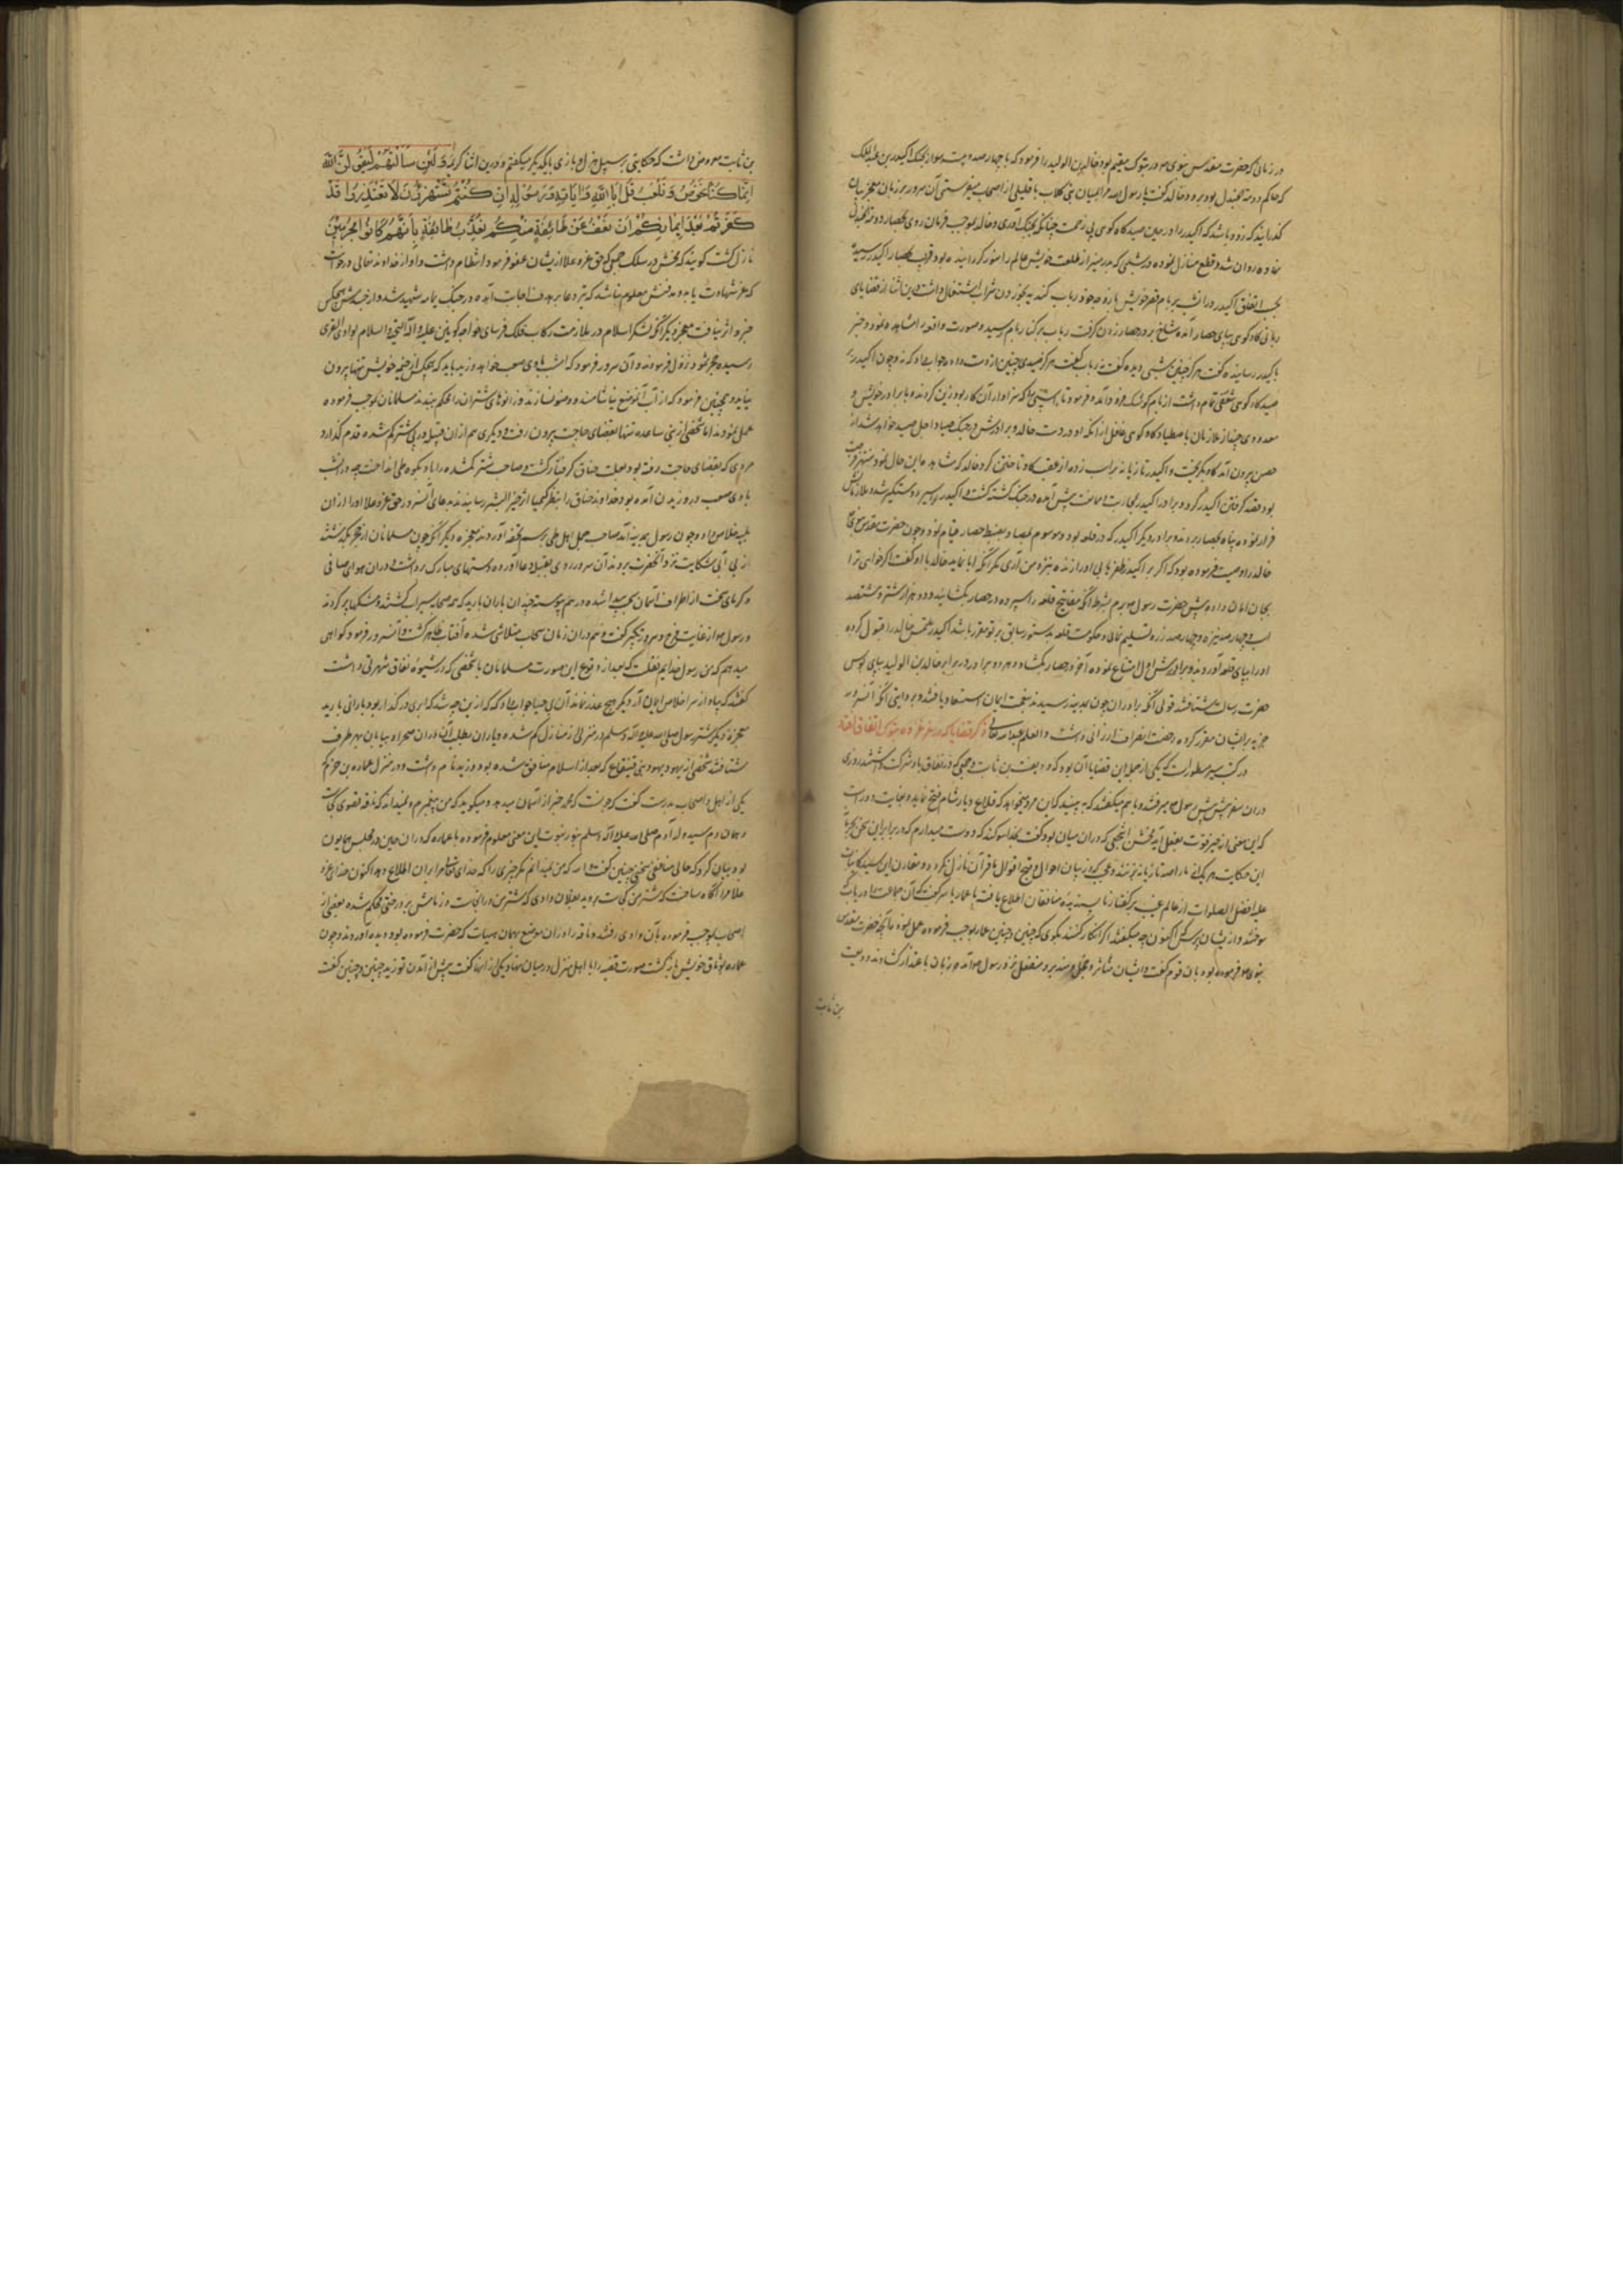 در زمانی که حضرت مقدس نبوی در تبوک مقیم بود خالد بن الولید را فرمود که با چهارصد و بیست سوار بجنک اکیدر بن عبدالملک
که حاکم دومة الجندل بود برود خالد گفت یا رسول الله مرا بمیان بنی کلاب با قلیلی از اصحاب میفرستی آن سرور بر زبان معجز بیان
گذرانید که زود باشد که اکیدر را در حین صید کاو کوهی بی زحمت جنگ آوری و خالد بموجب فرمان روی بحصار دومة الجندل
نهاده روان شد و قطع منازل نموده در شبی که بدر منیر از طلعت خویش عالم را منور گردانیده بود قریب بحصار اکیدر رسید
بحسب اتفاق اکیدر در انشب بر بام قصر خویش با زوجه خود رباب کندیه بخوردن شراب اشتغال داشت در این اثنا از قضایای
ربانی کاو کوهی بپای حصار آمده شاخ بر در حصار زدن گرفت رباب بر کنار بام رسید و صورت واقعه را مشاهده نمود و خبر
باکیدر رسانیده گفت هرگز چنین شبی دیده گفت نه رباب گفت هرگز صیدی چنین از دست داده جواب داد که نه و چون اکیدر بر
صید کاو کوهی شعفی تمام داشت از بام کوشک فرود آمده فرمود تا اسپی را که سزاوار آن کار بود زین کردند و با برادر خویش و
معدودی چند از ملازمان باصطیاد کاو کوهی غافل از آنکه او در دست خالد و برادرش در چنک صیاد اجل صید خواهد شد از
حصن بیرون آمد کاو بگریخت و اکیدر تازیانه بر اسب زده از عقب کاو تاختن کرد خالد که مشاهده این حال نمود منتهز فرصت
بود قصد گرفتن اکیدر کرد و برادر اکیدر بمحاربت و ممانعت پیش آمده در جنک کشته گشت و اکیدر اسیر و دستگیر شد و ملازمانش
فرار نموده پناه بحصار بردند و برادر دیگر اکیدر که در قلعه بود و موسوم بمصاد بضبط حصار قیام نمود و چون حضرت مقدس نبوی
خالد را وصیت فرموده بود که اگر بر اکیدر ظفر یابی او را زنده بنزد من آری مگر آنکه ابا نماید خالد با او گفت اگر خواهی ترا
بجان امان داده پیش حضرت رسول برم بشرط آنکه مفاتیح قلعه را سپرده در حصار بکشایند و دو هزار شتر و هشتصد
اسپ و چهارصد نیزه و چهارصد زره تسلیم نمایی و حکومت قلعه بدستور سابق بر تو مقرر باشد اکیدر ملتمس خالد را قبول کرده
او را بپای قلعه آوردند و برادرش اول امتناع نموده آخر در حصار بکشاد و هر دو برادر در برابر خالد بن الولید بپای بوس
حضرت رسالت شتافتند قولی آنکه برادران چون بمدینه رسیدند بنعمت ایمان استسعاد یافتند و بروایتی آنکه آنسرور
جزیه بر ایشان مقرر کرده رخصت انصراف ارزانی داشت والعلم عندالله تعالی ذکر قضایا که در سفر غزوه تبوک اتفاق افتاد
در کتب سیر مسطور است که یکی از جمله این قضایا آن بود که ودیعت بن ثابت و جمعی که در نفاق با او شرکت داشتند روزی
دران سفر پیش پیش رسول میرفتند و با هم میگفتند که ببینید که این مرد میخواهد که قلاع دیار شام فتح نماید و بغایت دور است
که این معنی از حیز قوت بفعل آید مخشن اشجعی که دران میان بود گفت بخدا سوگند که دوست میدارم که در برابر این سخن
این حکایت هر یک از ما را صد تازیانه بزنند و عجب که در بیان احوال و قبح اقوال ما قرآن نازل نگردد و مقارن این
علیه افضل الصلوات از عالم غیب بر گفتار ناپسندیده منافقان اطلاع یافته با عمار یاسر گفت که آن جماعت را دریاب که
سوختند و از ایشان بپرس که اکنون چه میگفتند اگر انکار کنند بگوی که چنین و چنین عمار بموجب فرموده عمل نمود و آنچه حضرت مقدس
نبوی فرموده بود بان قوم گفت و ایشان متأثر و خجل و شرمنده و منفعل نزد رسول آمده زبان باعتذار گشادند و ودیعت
بن ثابت
بن ثابت معروض داشت که حکایتی بر سبیل هزل و بازی با یکدیگر میگفتیم و درین اثنا کریمه وَلَئِن سَأَلْتَهُمْ لَيَقُولُنَّ
إِنَّمَا كُنَّا نَخُوضُ وَنَلْعَبُ قُلْ أَبِاللَّهِ وَآيَاتِهِ وَرَسُولِهِ كُنْتُمْ تَسْتَهْزِئُونَ لَا تَعْتَذِرُوا قَدْ
كَفَرْتُمْ بَعْدَ إِيمَانِكُمْ إِنْ نَعْفُ عَنْ طَائِفَةٍ مِنْكُمْ نُعَذِّبْ طَائِفَةً بِأَنَّهُمْ كَانُوا مُجْرِمِينَ
نازل گشت گویند که مخشن در سلک جمعی که حق عز و علا از ایشان عفو فرمود انتظام داشت و او از خداوند تعالی درخواست
که عز شهادت یابد و مدفنش معلوم نباشد که تیر دعا بر هدف اجابت آمده در جنک یمامه شهید شد و از جسدش هیچکس
خبر و اثر نیافت معجزه دیگر آنکه لشکر اسلام در ملازمت رکاب فلک فرسای خواجه کونین علیه و آله التحیة و السلام بوادی القری
رسیده بحجر ثمود نزول فرمودند و آن سرور فرمود که امشب بادی صعب خواهد وزید باید که هیچکس از خیمه خویش تنها بیرون
نیاید و همچنین فرمود که از آب آنموضع نیاشامند و وضو نسازند و زانوهای شتران را محکم ببندند مسلمانان بموجب فرموده
عمل نمودند اما شخصی از بنی ساعده تنها بقضای حاجت بیرون رفت و دیگری هم از ان قبیله در پی شتر گم شده قدم گذارد
مردی که بقضای حاجت رفته بود بعلت خناق گرفتار گشت و صاحب شتر گم شده را باد بکوه طی انداخت چه در انشب
بادی صعب در وزیدن آمده بود و خداوند خناق را بنظر کیمیا اثر خیر البشر رسانیدند بدعای آنسرور حق عز و علا او را از ان
بلیه خلاص داد و چون رسول بمدینه آمد صاحب جمل اهل طی برسم تحفه آوردند معجزه دیگر آنکه چون مسلمانان از حجر بگذشتند
از بی آبی شکایت نزد آنحضرت بردند آن سرور روی بقبله دعا آورده دستهای مبارک برداشت و دران هوای صافی
و گرمای سخت از اطراف آسمان سحاب پیدا شده در هم پیوست و چندان باران بارید که همه صحابه سیراب گشتند و مشکها پر کردند
و رسول از غایت فرح و سرور تکبیر گفت و هم دران زمان سحاب متلاشی شده آفتاب ظاهر گشت و آنسرور فرمود گواهی
میدهم که من رسول خدایم نقلست که بعد از وقوع این صورت مسلمانان با شخصی که در شیوه نفاق شهرتی داشت
گفتند که بیا و از سر اخلاص ایمان آر دیگر هیچ عذر نماند آن بی حیا جواب داد که از این چه شد که ابری در گذار بود بارانی بارید
معجزه دیگر شتر رسول صلی الله علیه و آله وسلم در منزلی از منازل گم شده و یاران بطلب آن دران صحرا و بیابان بهر طرف
شتافتند شخصی از یهود یهود بنی قینقاع که بعد از اسلام منافق شده بود و زید نام داشت و در منزل عماره بن حزم که
یکی از اهل و اصحاب بدرست گفت که عجبست که محمد خبر از آسمان میدهد و میگوید که من پیغمبرم و نمیداند که ناقه قصوی کجاست
و همان دم سید ولد آدم صلی الله علیه و آله وسلم بنور نبوت این معنی معلوم فرموده با عماره که دران حین در مجلس همایون
بود بیان کرد که حالی منافقی سخنی چنین گفت والله که من نمیدانم مگر چیزی را که خدای تعالی مرا بران اطلاع دهد اکنون خدای عز و
علا مرا آگاه ساخت که شتر من کجاست بروید بفلان وادی که شتر من در آنجاست و زمامش بر درختی محکم شده بعضی از
اصحاب بموجب فرموده بآن وادی رفتند و ناقه را در ان موضع بهمان هیات که حضرت فرموده بود دیده آوردند و چون
عماره بوثاق خویش بازگشت صورت قضیه را با اهل منزل در میان نهاد یکی از آنها گفت پیش از آمدن تو زید چنین و چنین گفت